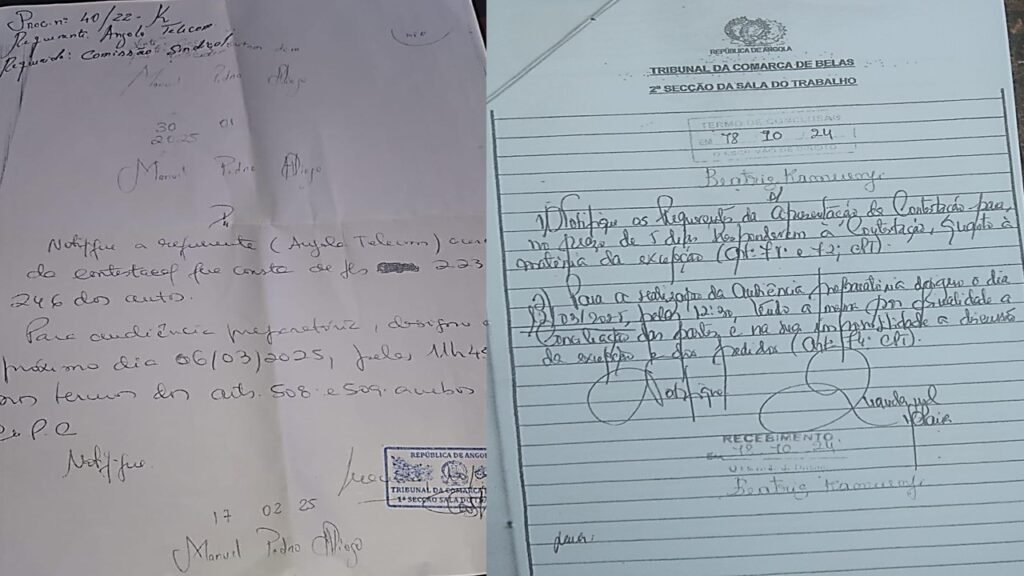 Proc. nº 40/22-K
Requerente: Angola Telecom
Requerido: Comissão Sindical
Manuel Pedro Diogo
30 01
2025
Manuel Pedro Diogo
Notifique a requerente (Angola Telecom)
da contestação que consta de fls 223
246 dos autos.
Para audiência preparatória, designo
próximo dia 06/03/2025, pelas 11h45
nos termos dos arts. 508º e 509º ambos
P. C
Notifique.
REPÚBLICA DE ANGOL
TRIBUNAL DA COMARCA
1ª SECÇÃO SALA DO
17 02 25
Manuel Pedro Diogo
REPÚBLICA DE ANGOLA
TRIBUNAL DA COMARCA DE BELAS
2ª SECÇÃO DA SALA DO TRABALHO
TERMO DE CONCLUSAIS
EM 18 10 24
O ESCRIVÃO DE DIREITO
1) Notifique os Requerentes da apresentação da Contestação para,
no prazo de 5 dias responderem à Contestação, quanto à
matéria da excepção (artº 71º e 72, CPT).
2) Para a realização da Audiência preparatória designo o dia
/03/2025, pelas 12:30, tendo a mesma por finalidade a
Conciliação das partes e na sua impossibilidade a discussão
da excepção e dos pedidos (artº 74º CPT).
Notifique
RECEBIMENTO
Em 18 10 24